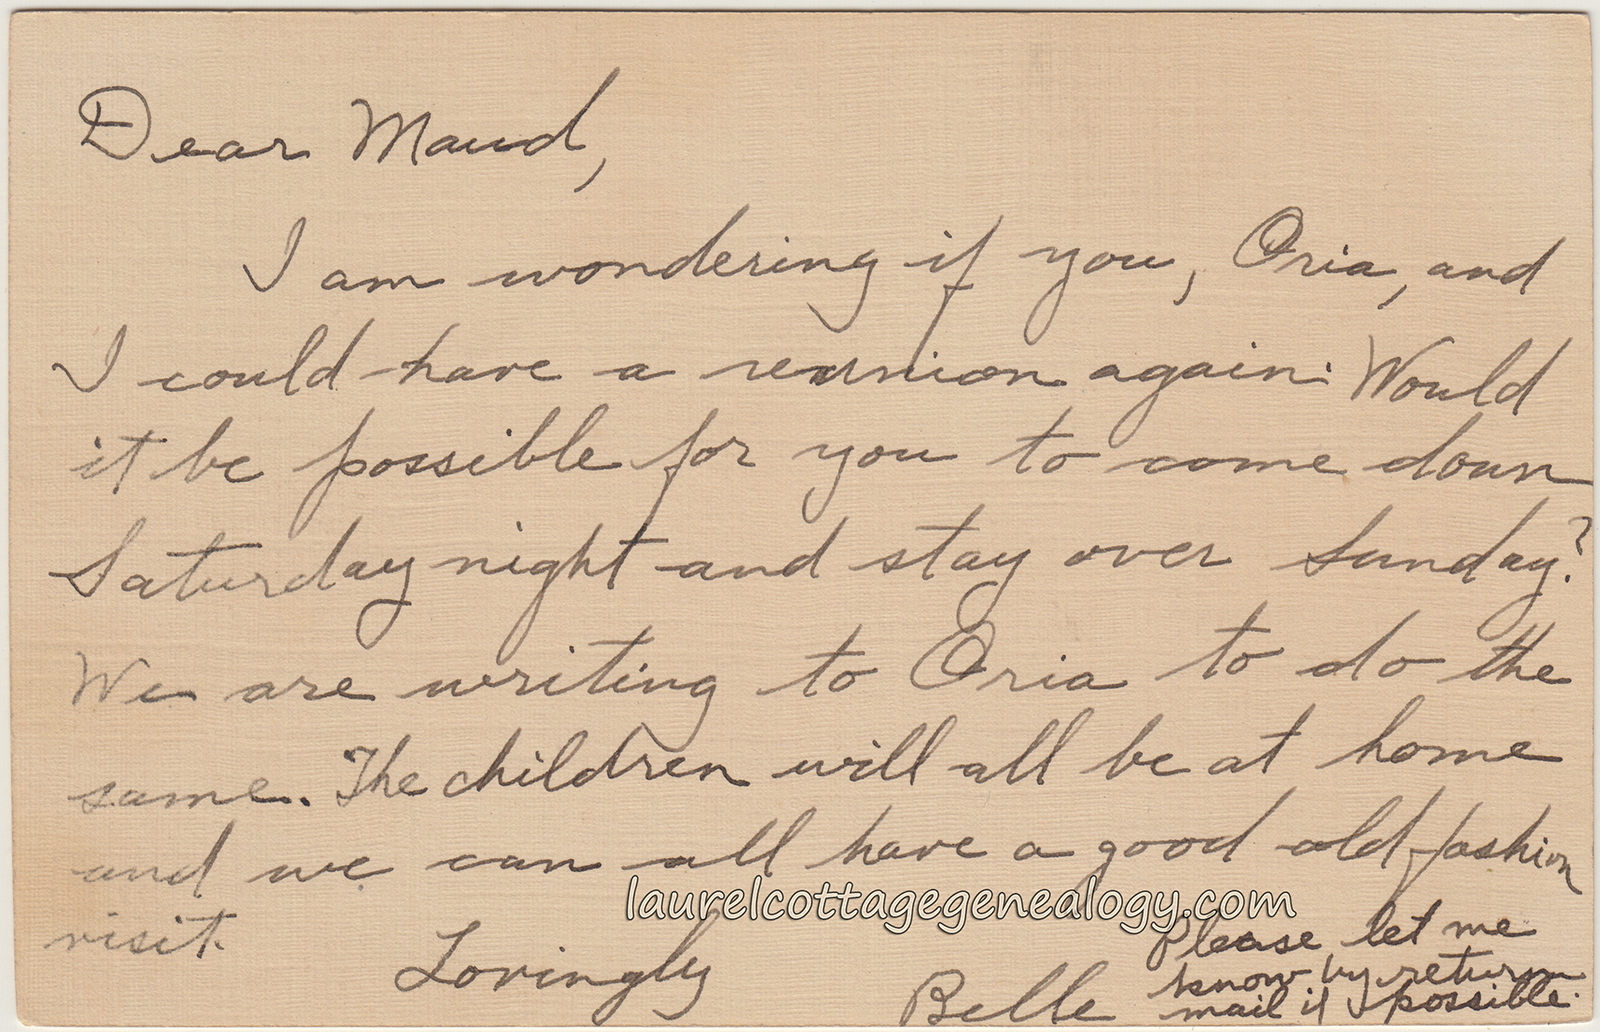 Dear Maud,
I am wondering if you, Oria, and
I could have a reunion again. Would
it be possible for you to come down
Saturday night and stay over Sunday?
We are writing to Oria to do the
same. The children will all be at home
and we can all have a good old fashion
visit.
Lovingly
Belle
Please let me
know by return
mail if possible.
laurelcottagegenealogy.com